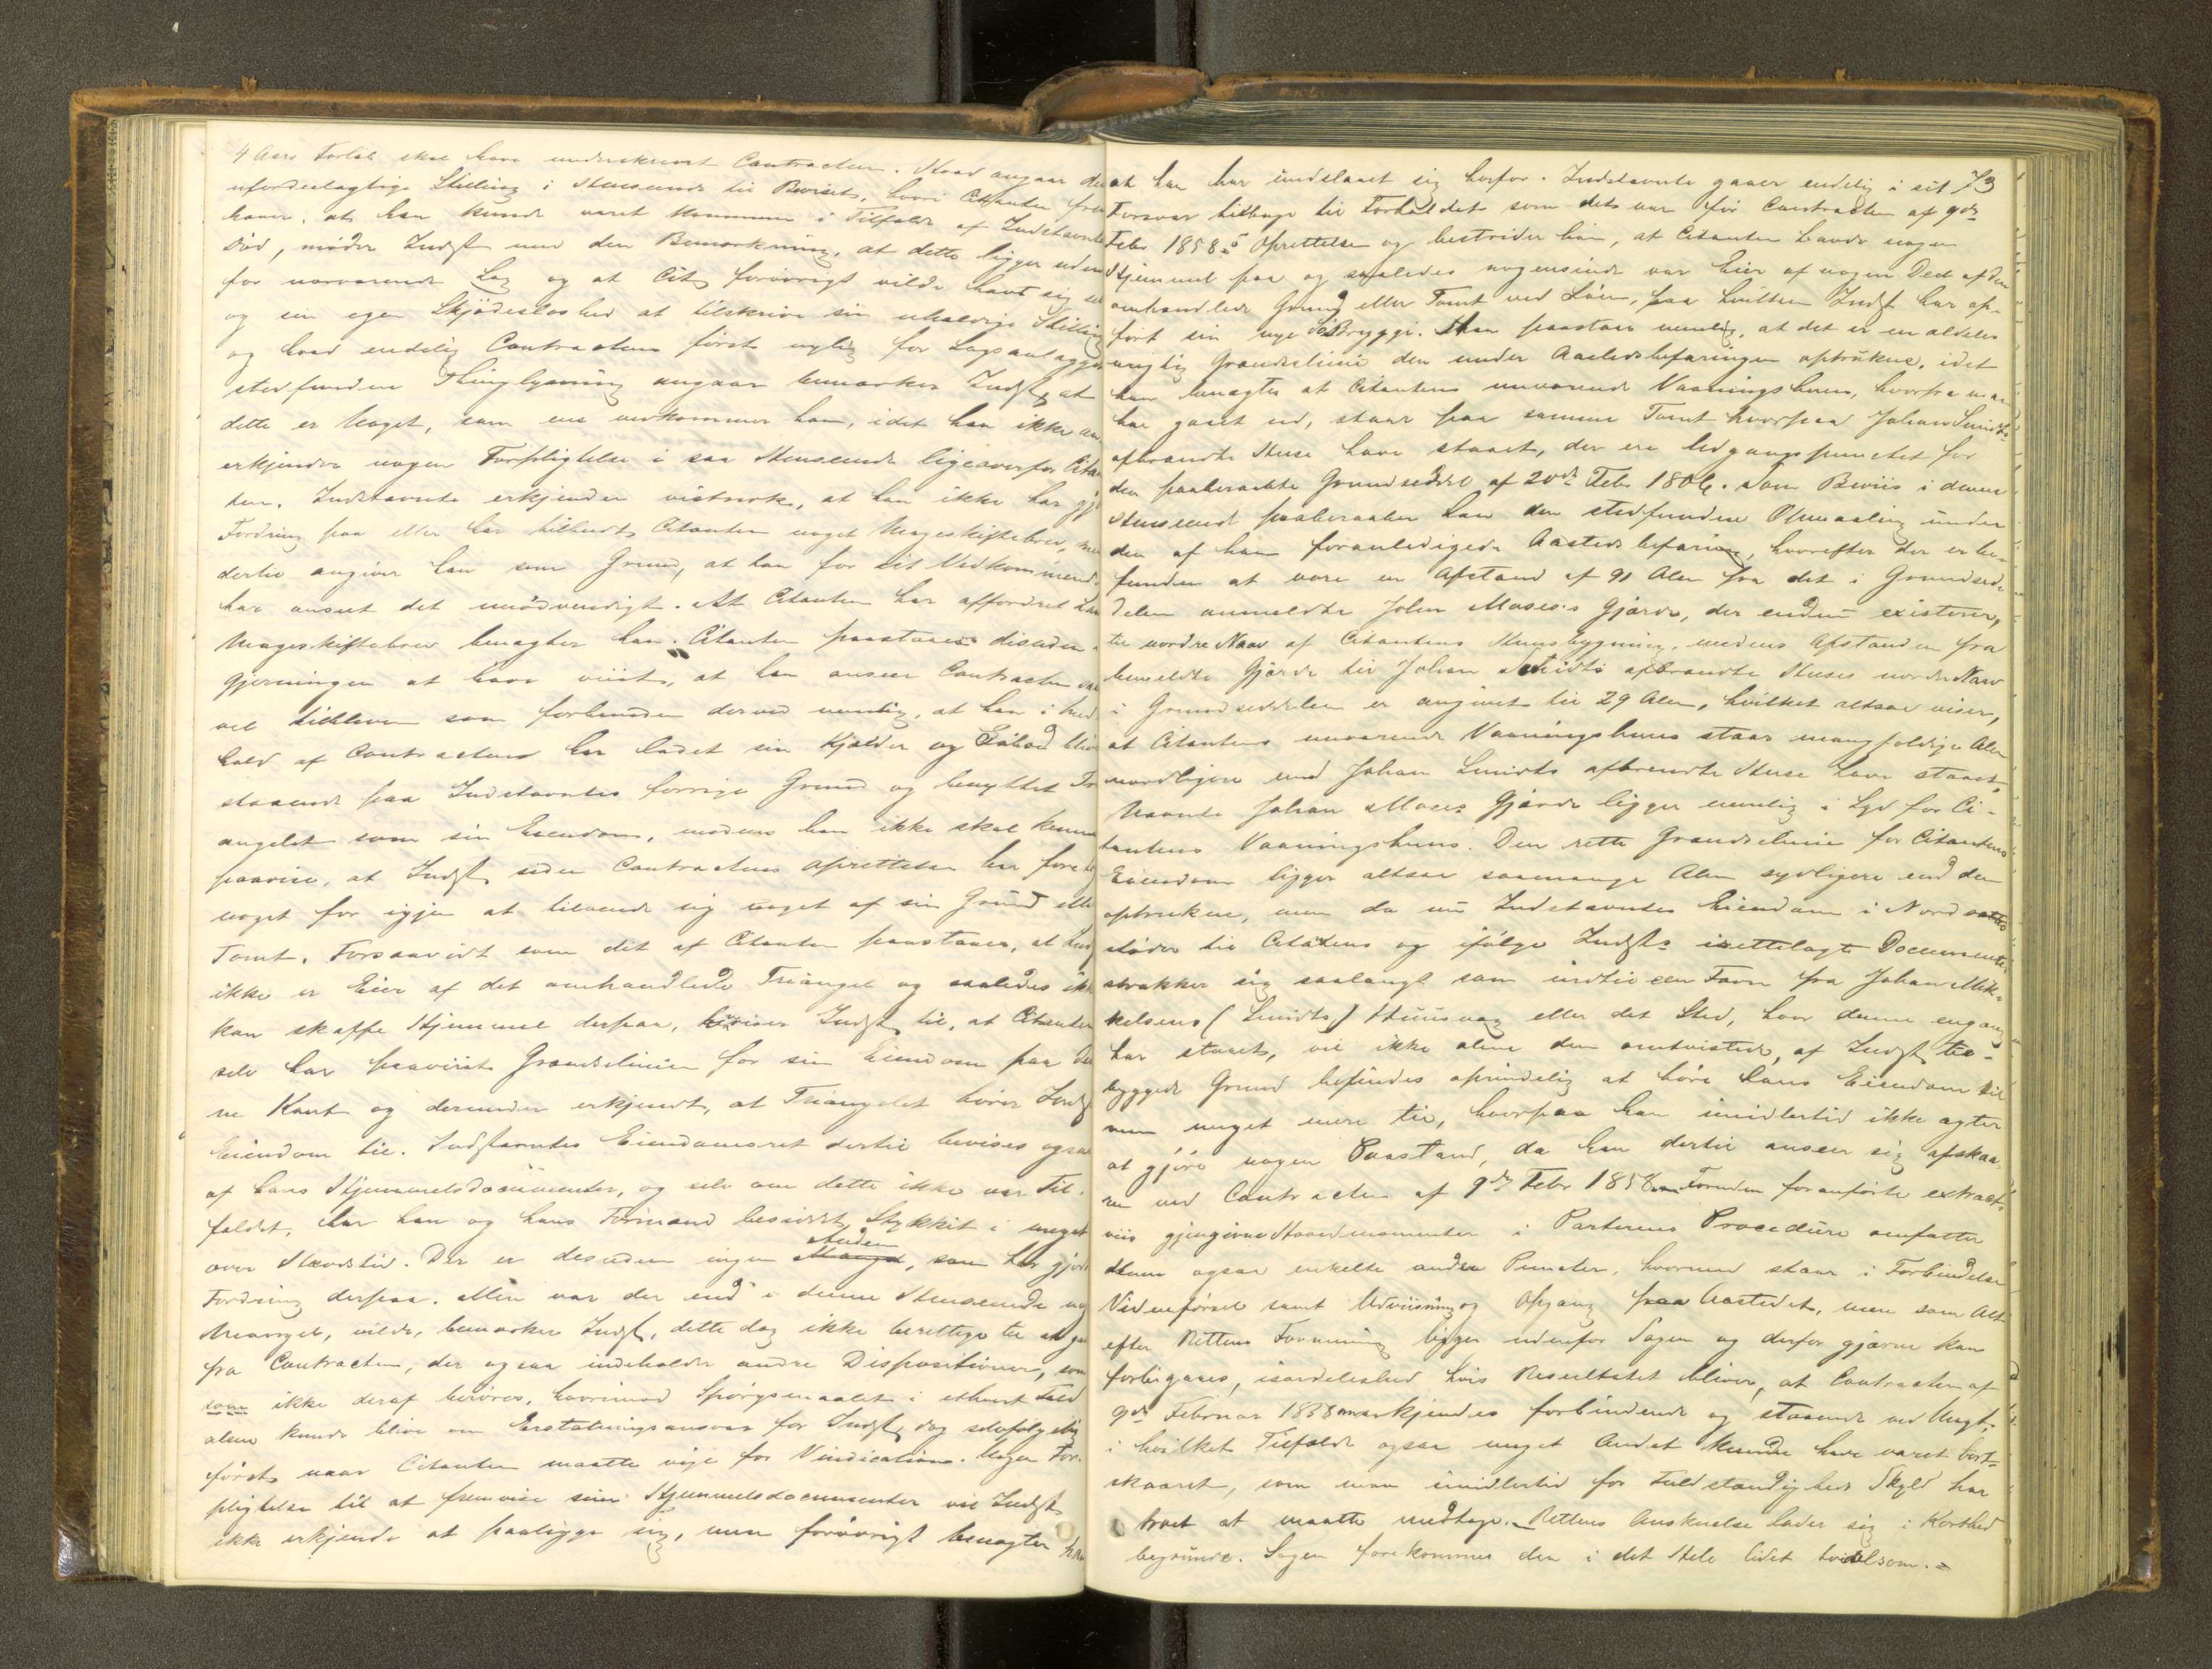 4 Aars Forløb skal have underskrevet Contracten. Hvad angaar den
ufordeelagtige Stilling i Henseende til Beviset, hvori Citanten frem
hæver, at han kunde været kommen i Tilfælde af Indstævntes
Død, møder Indst. med den Bemærkning, at dette ligger udenfor
for nærværende Sag og at Cit. forøvrigt vilde havt sig selv
og sin egen Skjødesløshed at tilskrive sin uheldige Stilling
og hvad endelig Contractens først nylig før Sagsanlægget
stedfundne Thinglysning angaar bemærker Indst., at
dette er Noget, som ene vedkommer ham, idet han ikke an
erkjender nogen Forpligtelse i saa Henseende ligeoverfor Citan
ten. Indstævnte erkjender vistnok, at han ikke har gjort
Fordring paa eller har tilbudt Citanten noget Mageskiftebrev, men
dertil angiver han som Grund, at han for sit Vedkommende
har anseet det unødvendigt. At Citanten har affordret ham
Mageskiftebrev benægter han. Citanten paastaaes desuden i
Gjerningen at have viist, at han anseer Contracten saa
vel tilbleven som forbunden derved nemlig, at han i Hen
hold af Contracten har ladet sin Kjælder og Søbod blive
staaende paa Indstævntes forrige Grund og benyttet Tri
angelet som sin Eiendom, medens han ikke skal kunne
paavise, at Indst. siden Contractens Oprettelse har foretaget
noget for igjen at tilvende sig noget af sin Grund eller
Tomt. Forsaavidt som det af Citanten paastaaes, at Indst.
ikke er Eier af det omhandlede Triangel og saaledes ikke
kan skaffe Hjemmel derpaa, henviser Indst. til, at Citanten
selv har paaviist Grændselinien for sin Eiendom paa den
ne Kant og derunder erkjendt, at Triangelet hører Indst.
Eiendom til. Indstævntes Eiendomsret dertil bevises ogsaa
af hans Hjemmelsdocumenter, og selv om dette ikke var Til-
fældet, har han og hans Formænd besiddet Stykket i meget
over Hævdstid. Der er desuden ingen Anden, som har gjort
Fordring derpaa. Men var der end i denne Henseende no
Mangel, vilde, bemærker Indst., dette dog ikke berettige til at gaa
fra Contracten, der ogsaa indeholder andre Dispositioner, som
som ikke deraf berøres, hvorimod Spørgsmaalet i ethvert Fald
alene kunde blive om Erstatningsansvar for Indst., dog selvfølgelig
først naar Citanten maatte vige for Vindication. Nogen For-
pligtelse til at fremvise sine Hjemmelsdocumenter vil Indst.
ikke erkjende at paaligge sig, men forøvrigt benægter han
73
at han har undslaaet sig herfor. Indstævnte gaaer endelig i sit
Forsvar tilbage til Forholdet som det var før Contracten af 9de
Febr 1858s Oprettelse og bestrider her, at Citanten havde nogen
Hjemmel paa og saaledes nogensinde var Eier af nogen Deel af den
omhandlede Grund eller Tomt ved Søen, paa hvilken Indst. har op-
ført sin nye Søbrygge. Han paastaar nemlig, at det er en aldeles
urigtig Grændselinie den under Aastedsbefaringen optrukne, idet
han benægter at Citantens nuværende Vaaningshuus, hvorfra man
har gaaet ud, staar paa samme Tomt hvorpaa Johan Smidts
afbrændte Huse have staaet, der ere Udgangspunctet for
den paaberaabte Grundseddel af 20de Febr 1806. Som Beviis i denne
Henseende paaberaaber han den stedfundne Opmaaling under
den af ham foranledigede Aastedsbefaring, hvorefter der er be-
funden at være en Afstand af 91 Alen fra det i Grundsed-
delen anmeldte John Moses's Gjærde, der endnu existerer,
til nordre Nav af Citantens Huusbygning, medens Afstanden fra
bemeldte Gjærde til Johan Smidts afbrændte Huses nordre Nav
i Grundseddelen er angivet til 29 Alen, hvilket altsaa viser,
at Citantens nuværende Vaaningshuus staar mangfoldige Alen
nordligere end Johan Smidts afbrændte Huse have staaet.
Nævnte Johan Moses Gjærde ligger nemlig i Syd for Ci-
tantens Vaaningshuus. Den rette Grændselinie for Citantens
Eiendom ligger altsaa saamange Alen sydligere end den
optrukne, men da nu Indstævntes Eiendom i Nord
støder til Citatens og ifølge Indst.s irettelagte Documenter
strækker sig saalangt som indtil een Favn fra Johan Mik-
kelsens (Smidts) Huusvæg eller det Sted, hvor denne engang
har staaet, vil ikke alene den omtvistede, af Indst. be-
byggede Grund befindes oprindelig at høre hans Eiendom til
men meget mere til, hvorpaa han imidlertid ikke agter
at gjøre nogen Paastand, da han dertil anseer sig afskaa-
ren ved Contracten af 9de Febr 1858. Foruden foranførte extract-
viis gjengivne Hovedmomenter i Parternes Procedure omfatter
denne ogsaa enkelte andre Puncter, hvormed staar i Forbindelse
Vidneførsel samt Udviisning og Opgang paa Aastedet, men som Alt
efter Rettens Formening ligger udenfor Sagen og derfor gjerne kan
forbigaaes, isærdeleshed hvis Resultatet bliver, at Contracten af
9de Februar 1858 anerkjendes forbindende og staaende ved Magt,
i hvilket Tilfælde ogsaa meget Andet kunde have været bort-
skaaret, som man imidlertid for Fuldstændigheds Skyld har
troet at maatte medtage. Rettens Anskuelse lader sig i Korthed
begrunde. Sagen forekommer den i det Hele lidet tvivlsom.